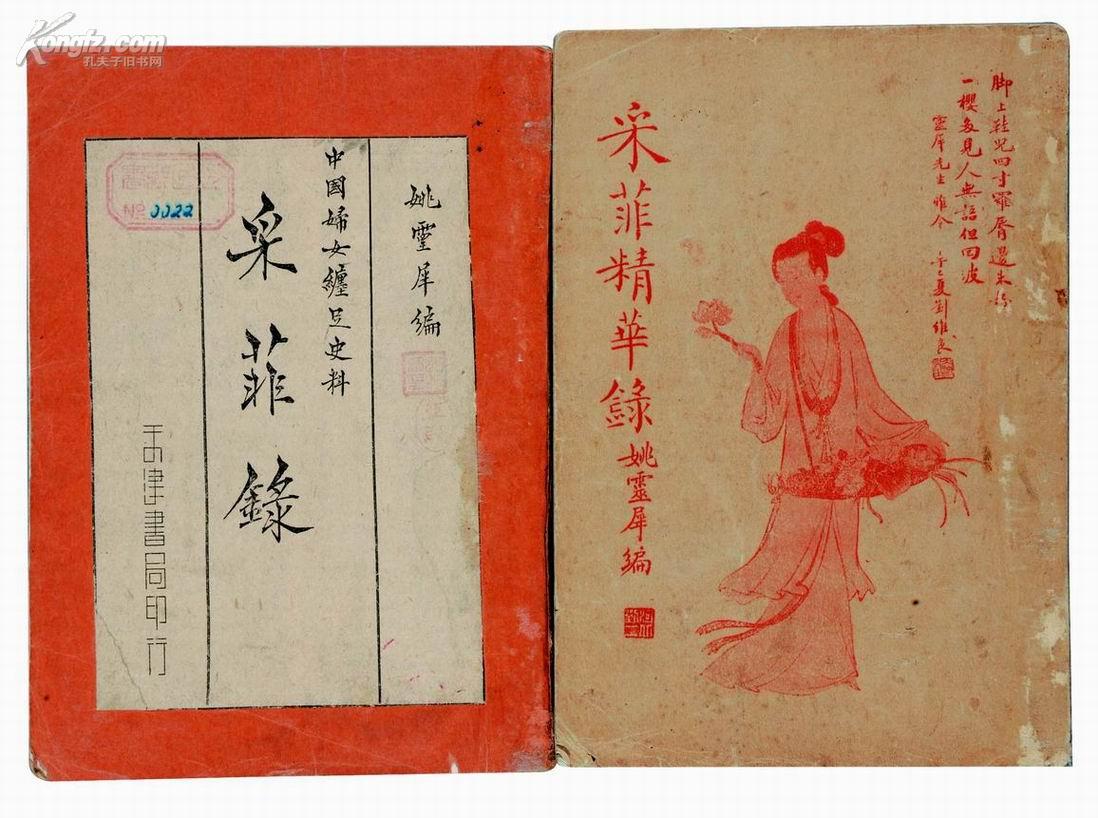 Kongfz.com
孔夫子旧书网
№ 0022
姚靈犀編
中國婦女纏足史料
采菲錄
天津書局印行
脚上鞋兒四寸羅唇邊朱
一櫻多見人無語但回波
靈犀先生雅令
辛巳夏劉維良
采菲精華錄
姚靈犀編